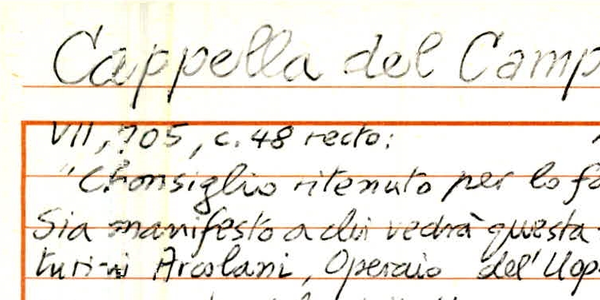 Cappella del Camp
VII, 705, c. 48 recto:
"Chonsiglio ritenuto per lo fa
Sia manifesto a chi vedrà questa
Arcolani, Operaio del'Uop